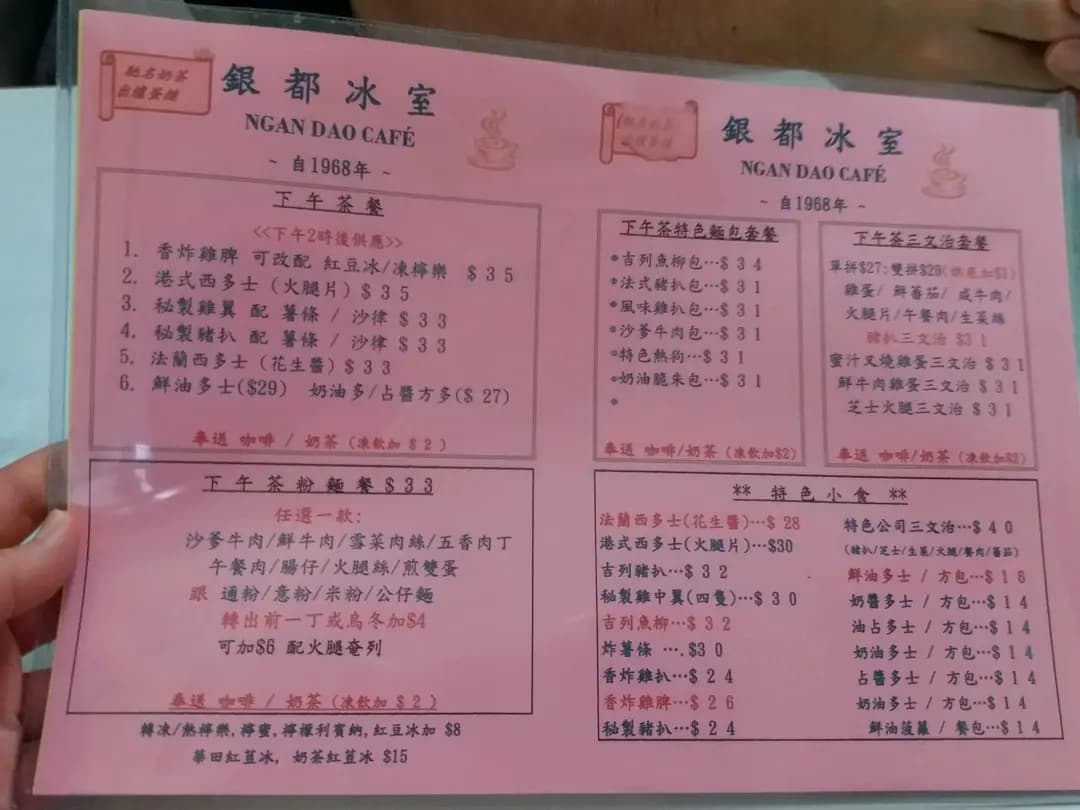 馳名奶茶
出爐蛋撻
銀都冰室
NGAN DAO CAFÉ
~ 自1968年 ~
下午茶餐
<<下午2時後供應>>
1. 香炸雞脾 可改配 紅豆冰/凍檸樂 $35
2. 港式西多士 (火腿片) $35
3. 秘製雞翼 配 薯條 / 沙律 $33
4. 秘製豬扒 配 薯條 / 沙律 $33
5. 法蘭西多士 (花生醬) $33
6. 鮮油多士($29) 奶油多/占醬方多($ 27)
奉送 咖啡 / 奶茶 (凍飲加 $2 )
下午茶粉麵餐$33
任選一款:
沙爹牛肉/鮮牛肉/雪菜肉絲/五香肉丁
午餐肉/腸仔/火腿絲/煎雙蛋
跟 通粉/意粉/米粉/公仔麵
轉出前一丁或烏冬加$4
可加$6 配火腿奄列
奉送 咖啡 / 奶茶 (凍飲加 $2 )
轉凍/熱檸樂,檸蜜,檸檬利賓納,紅豆冰加 $8
華田紅荳冰, 奶茶紅荳冰 $15
銀都冰室
NGAN DAO CAFÉ
~ 自1968年 ~
下午茶特色麵包套餐
*吉列魚柳包…$34
*法式豬扒包…$31
*風味雞扒包…$31
*沙爹牛肉包…$31
*特色熱狗…$31
*奶油脆朱包…$31
*
奉送 咖啡/奶茶 (凍飲加$2)
下午茶三文治套餐
單拼$27;雙拼$29(烘底加$1)
雞蛋/ 鮮蕃茄/ 咸牛肉/
火腿片/午餐肉/生菜絲
豬扒三文治 $31
蜜汁叉燒雞蛋三文治 $31
鮮牛肉雞蛋三文治 $31
芝士火腿三文治 $31
奉送 咖啡/奶茶 (凍飲加$2)
** 特色小食 **
法蘭西多士(花生醬)…$ 28
港式西多士(火腿片)…$30
吉列豬扒…$32
秘製雞中翼(四隻)…$30
吉列魚柳…$32
炸薯條 ….$30
香炸雞扒…$24
香炸雞脾…$26
秘製豬扒…$24
特色公司三文治…$40
(豬扒/芝士/生菜/火腿/餐肉/蕃茄)
鮮油多士 / 方包…$16
奶醬多士 / 方包…$14
油占多士 / 方包…$14
奶油多士 / 方包…$14
占醬多士 / 方包…$14
奶油多士 / 方包…$14
鮮油菠蘿 / 餐包…$14